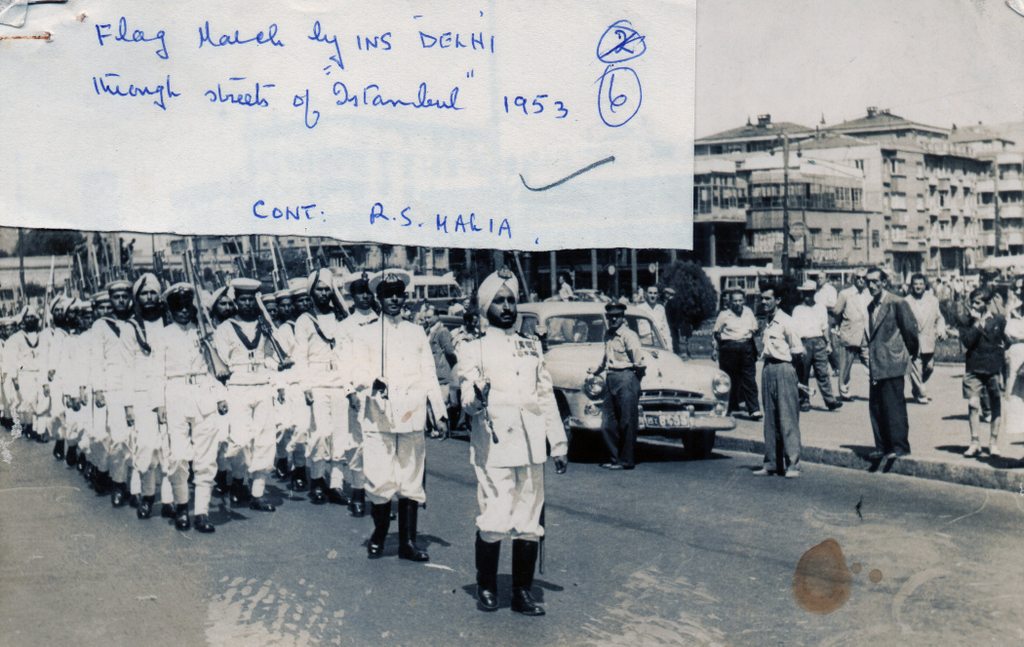 Flag March by INS DELHI
through streets of "Istambul" 1953
2
6
CONT: R.S. MALIA.